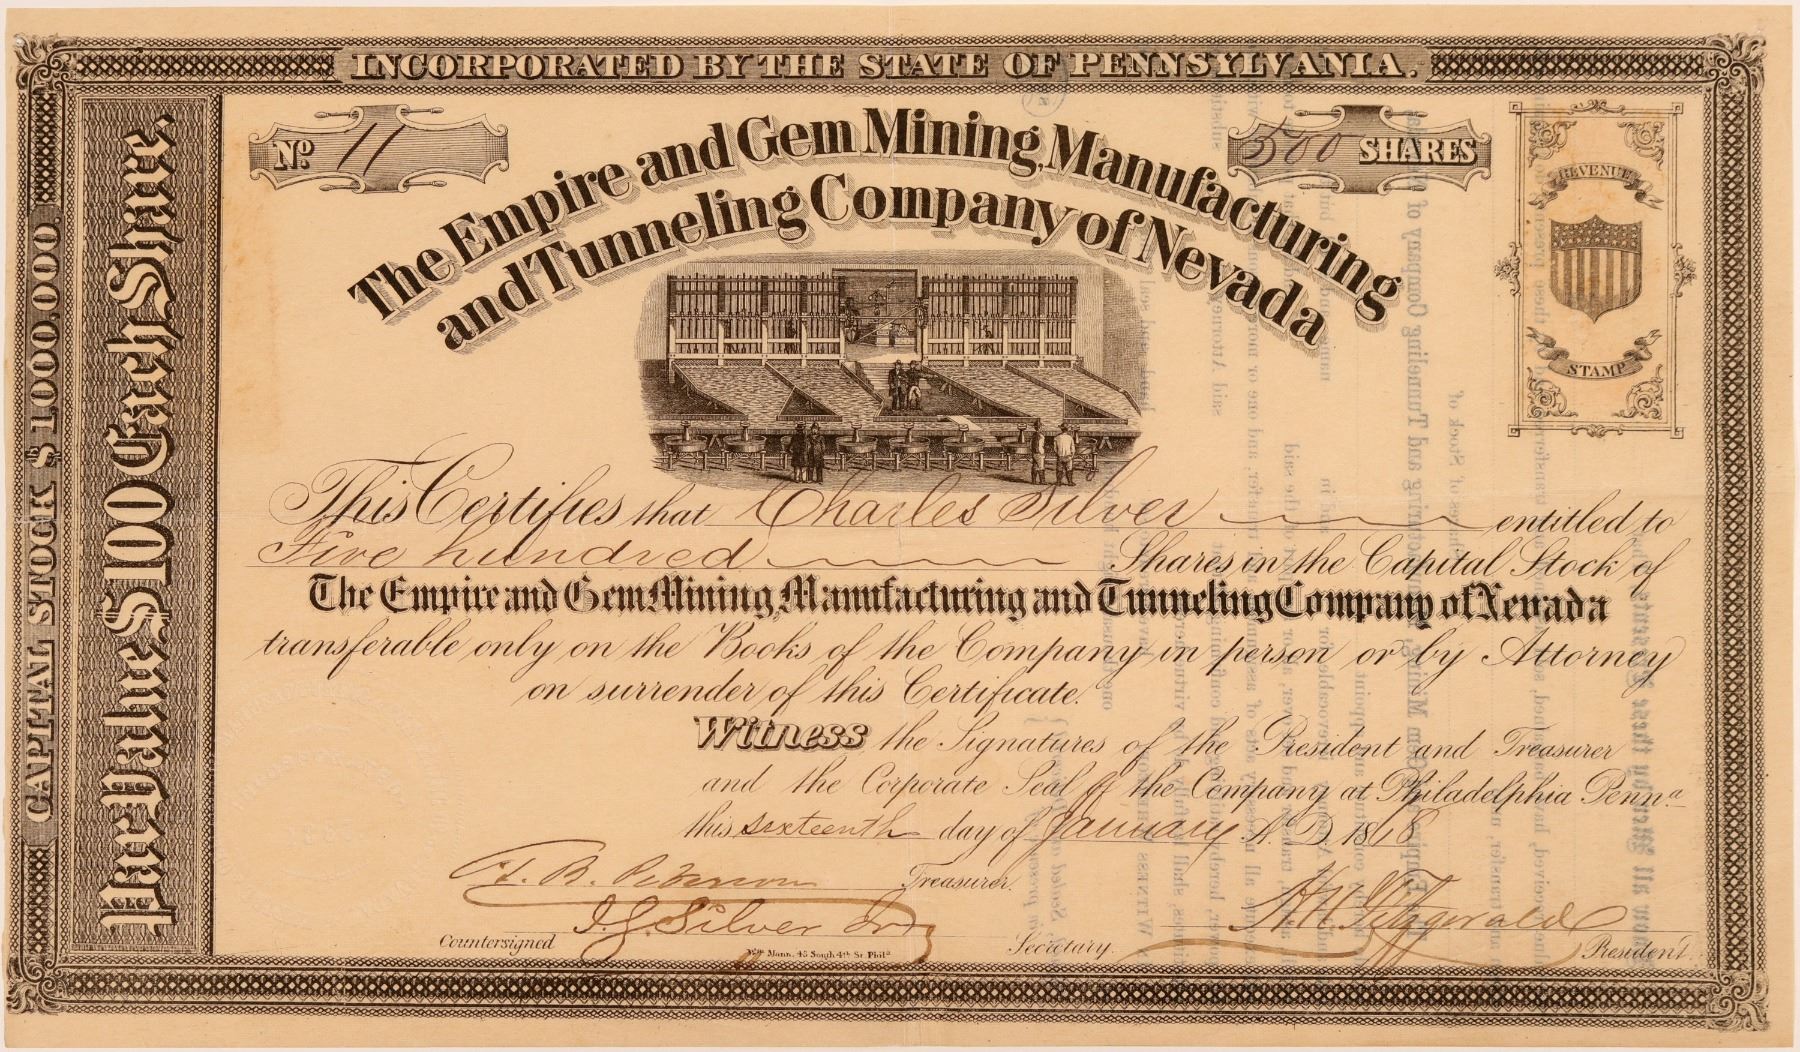 INCORPORATED BY THE STATE OF PENNSYLVANIA.
No 11
500 SHARES
The Empire and Gem Mining, Manufacturing
and Tunneling Company of Nevada
REVENUE
STAMP
CAPITAL STOCK $1000,000.
Par Value $100 Each Share.
This Certifies that Charles Silver entitled to
Five hundred Shares in the Capital Stock of
The Empire and Gem Mining, Manufacturing and Tunneling Company of Nevada
transferable only on the Books of the Company in person or by Attorney
on surrender of this Certificate.
Witness the Signatures of the President and Treasurer
and the Corporate Seal of the Company at Philadelphia Penna
this sixteenth day of January A.D. 1868
Treasurer.
Countersigned J. G. Silver Jr. Secretary.
H. H. Fitzgerald President
Wm Mann. 43 South 4th St Phila